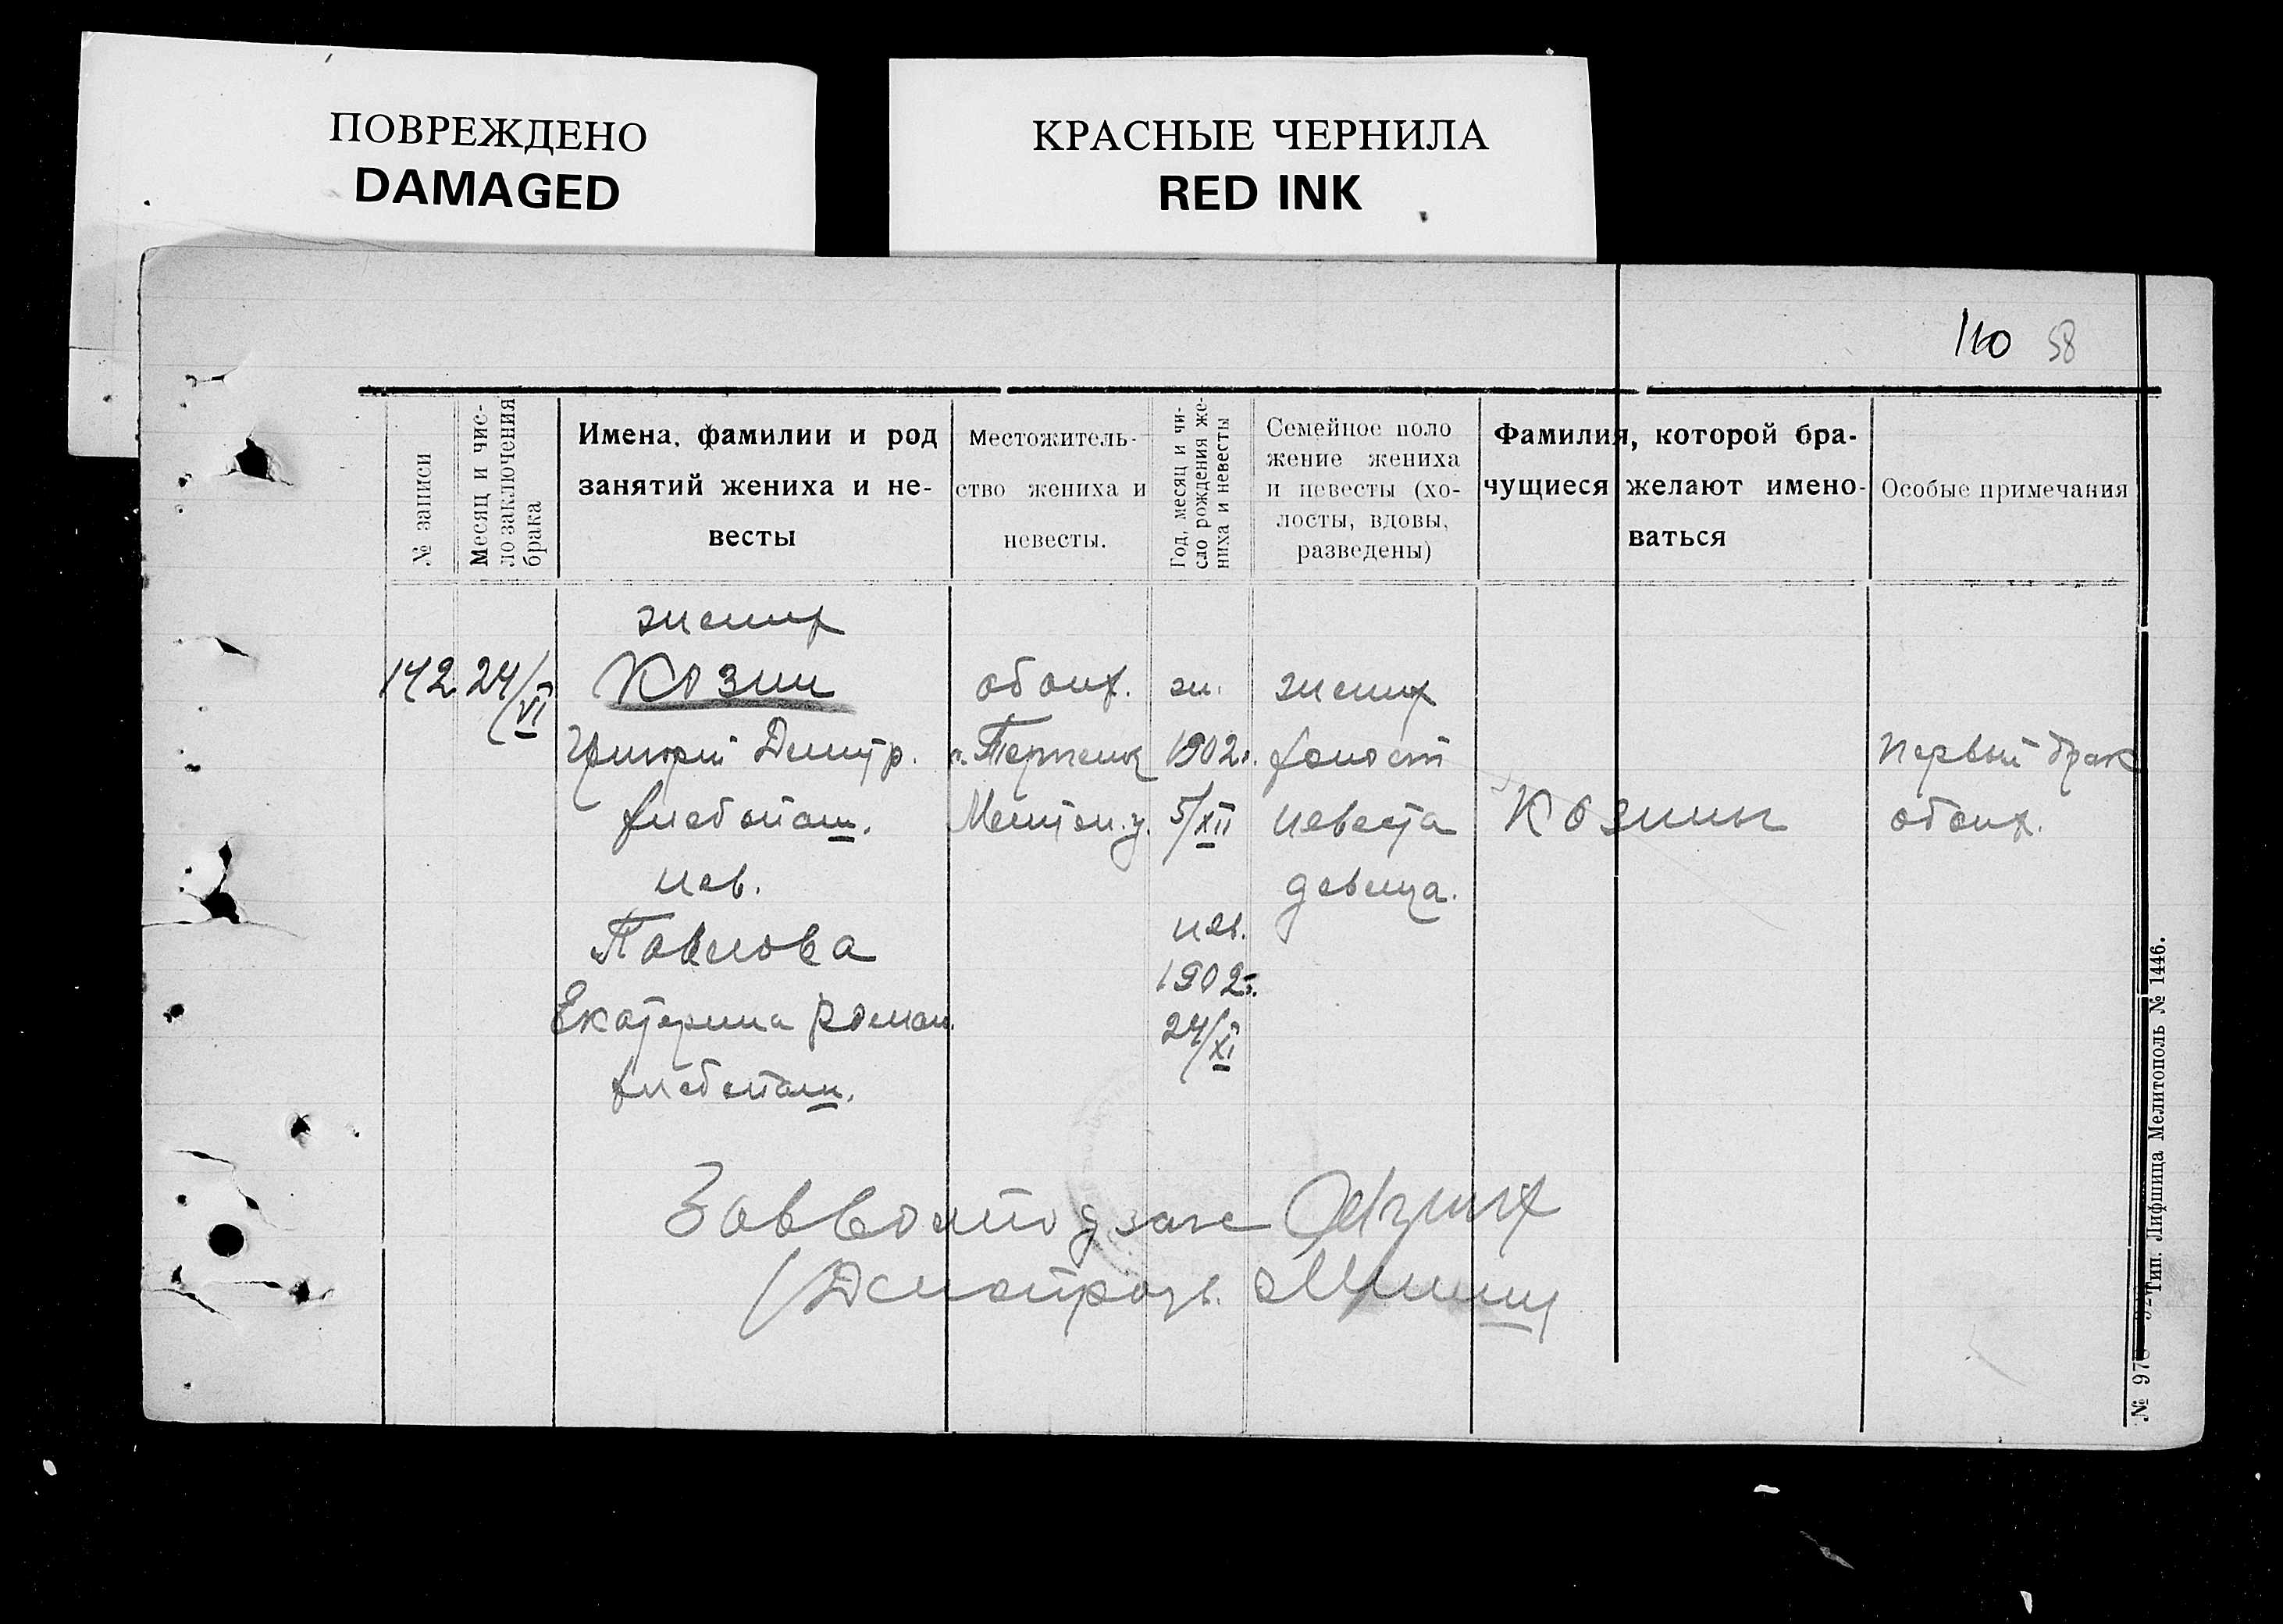 ПОВРЕЖДЕНО
DAMAGED
КРАСНЫЕ ЧЕРНИЛА
RED INK
110 58
№ записи
Месяц и чис-
ло заключения
брака
Имена, фамилии и род
занятий жениха и не-
весты
Местожитель-
ство жениха и
невесты.
Год, месяц и чи-
сло рождения же-
ниха и невесты
Семейное поло
жение жениха
и невесты (хо-
лосты, вдовы,
разведены)
Фамилия, которой бра-
чущиеся желают имено-
ваться
Особые примечания
142
24/VI
жених
Козин
Григорий Дмитр.
хлебопаш.
нев.
Павлова
Екатерина Роман.
хлебопаш.
обоих.
Мелитоп. у.
ж.
1902г.
5/XII
нев.
1902г.
24/XI
жених
холост
невеста
девица.
Козины
Первый брак
обоих.
Зав
№ 976
Тип. Лифшица Мелитополь № 1446.